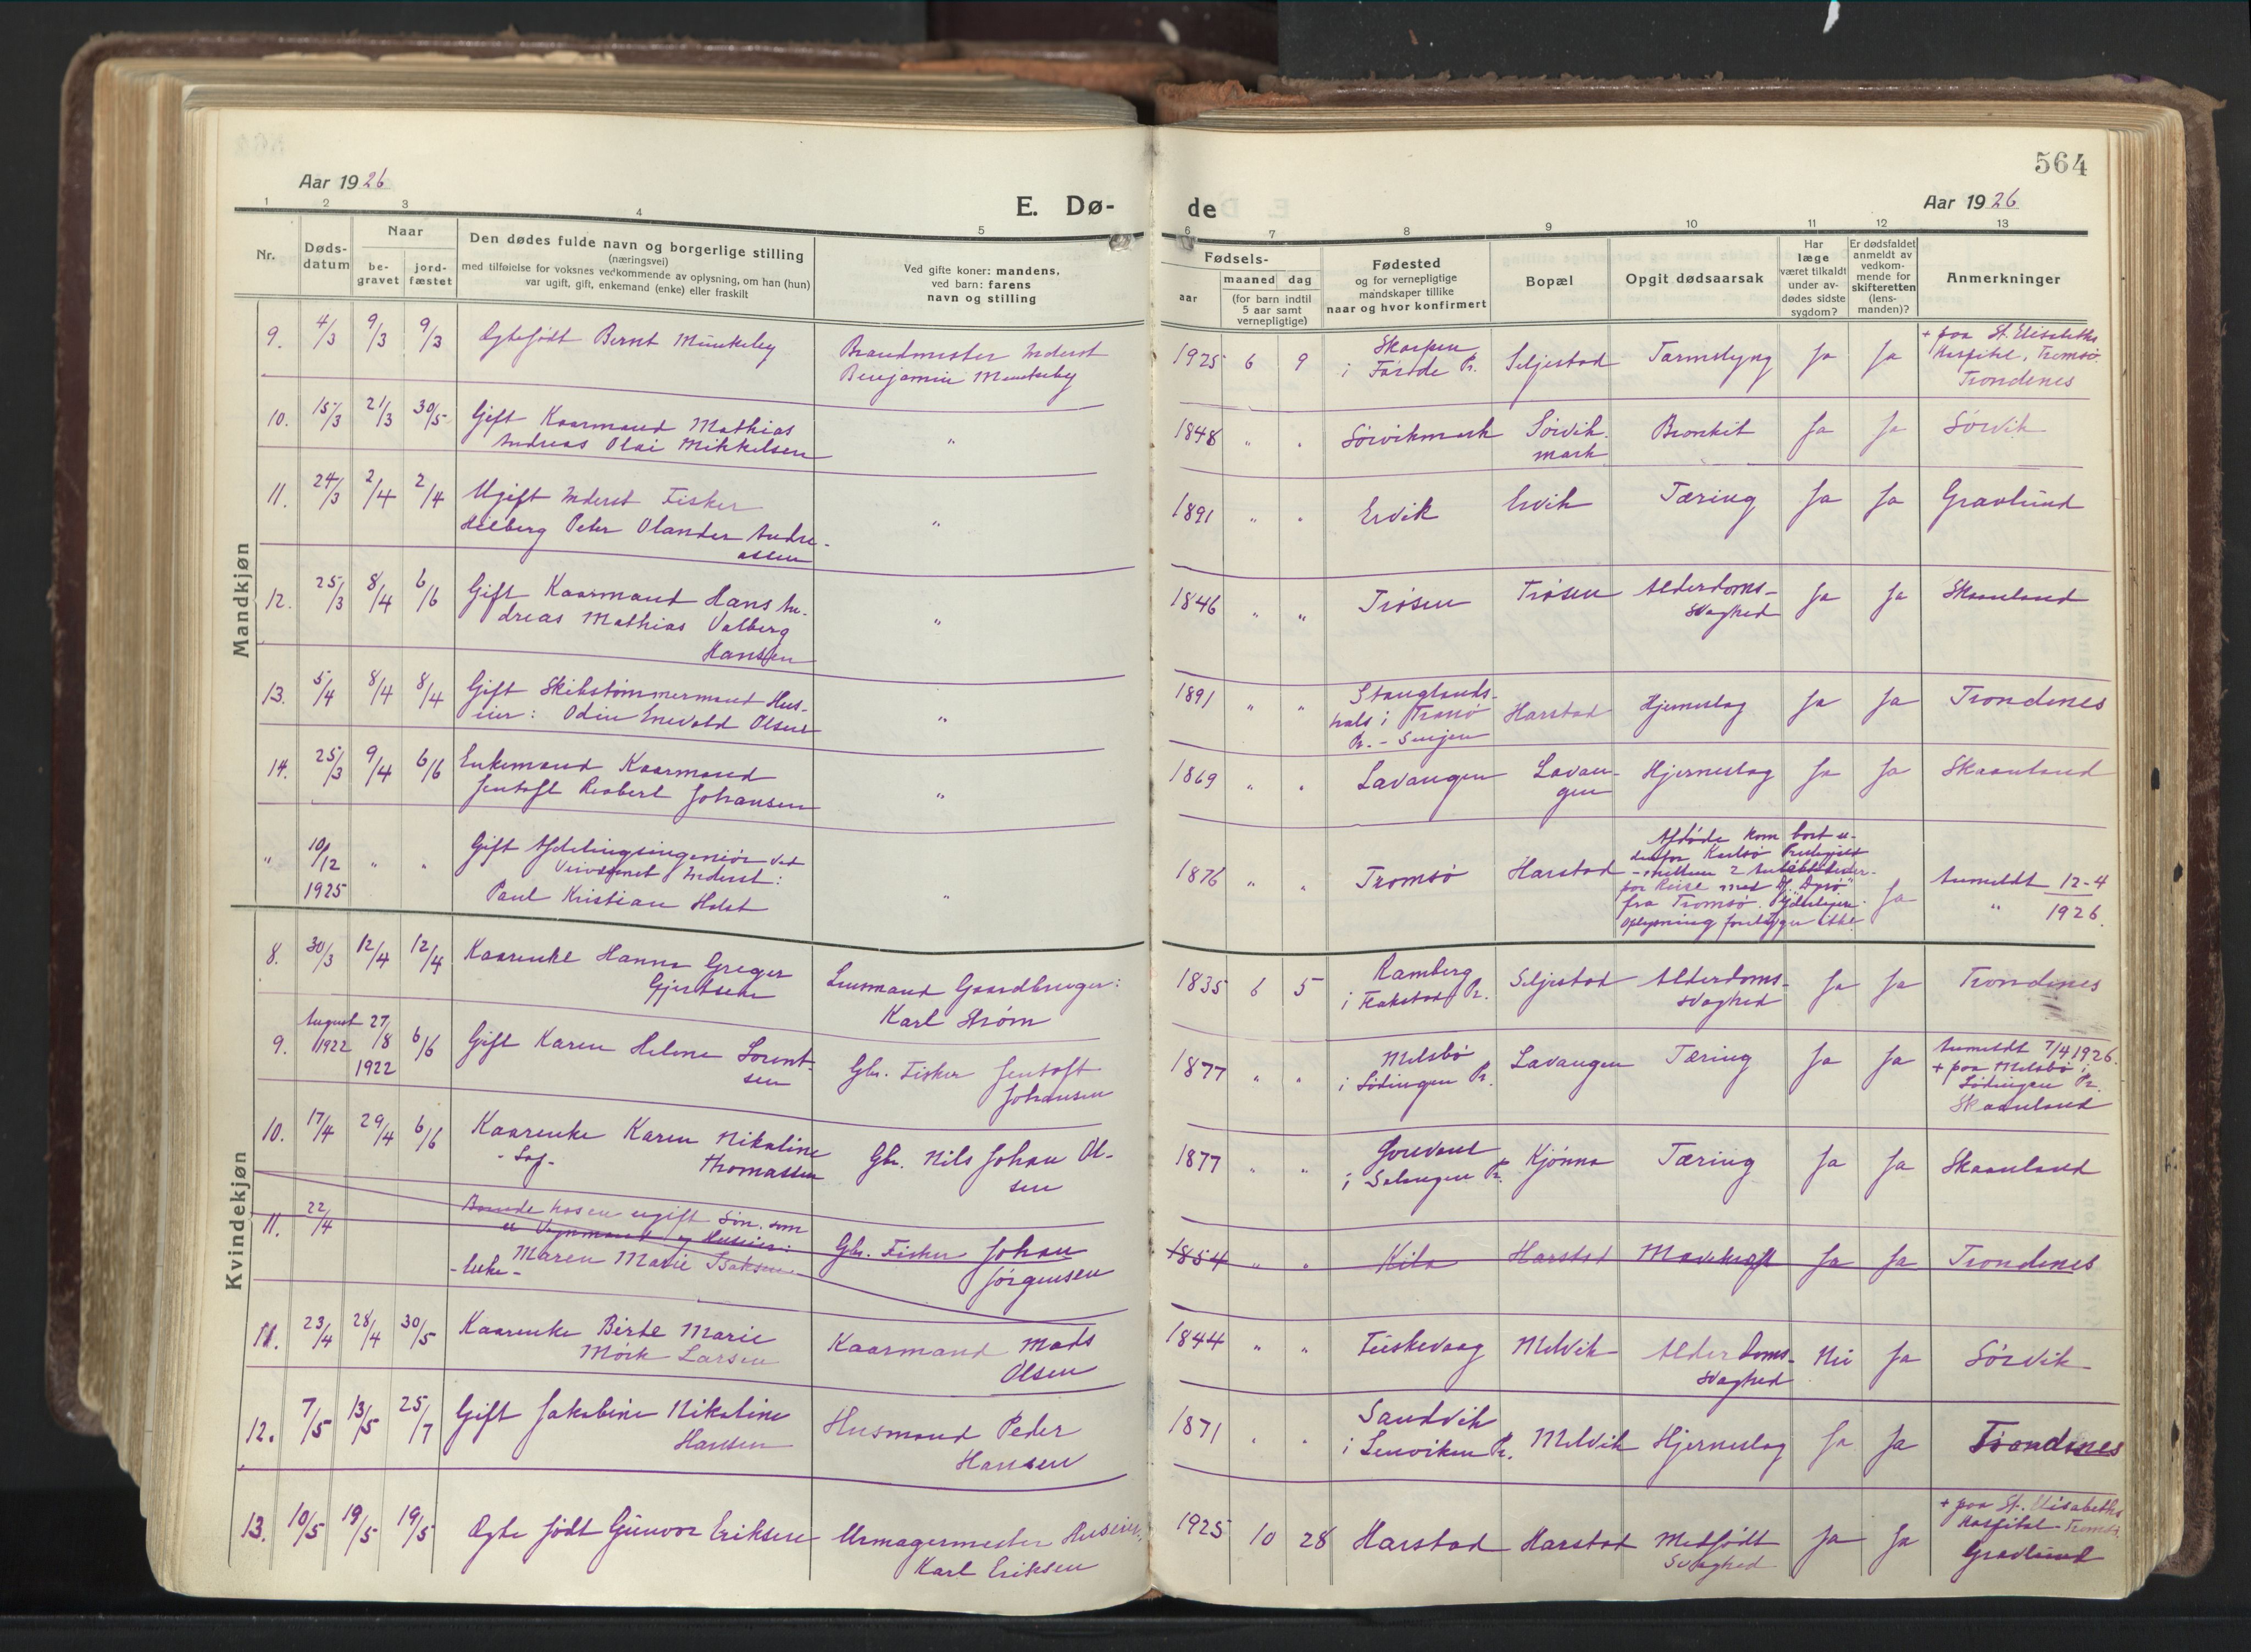 564
Aar 1926
Aar 1926
E. Dø-
de
1 2 3 4 5
6 7 8 9 10 11 12 13
Nr.
Døds-
datum
Naar
be-
gravet
jord-
fæstet
Den dødes fulde navn og borgerlige stilling
(næringsvei)
med tilføielse for voksnes vedkommende av oplysning, om han (hun)
var ugift, gift, enkemand (enke) eller fraskilt
Ved gifte koner: mandens,
ved barn: farens
navn og stilling
Fødsels-
aar
maaned dag
(for barn indtil
5 aar samt
vernepligtige)
Fødested
og for vernepligtige
mandskaper tillike
naar og hvor konfirmert
Bopæl
Opgit dødsaarsak
Har
læge
været tilkaldt
under av-
dødes sidste
sygdom?
Er dødsfaldet
anmeldt av
vedkom-
mende for
skifteretten
(lens-
manden)?
Anmerkninger
Mandkjøn
9. 4/3 9/3 9/3
Ægtefødt Bernt Munkeby
Brandmester Inderst
Benjamin Munkeby
1925 6 9
i Pr.
Seljestad
Tarmslyng
Ja Ja
+ paa St. Elisabeths
Hospital, Tromsø.
Trondenes
10. 15/3 21/3 30/5
Gift Kaarmand Mathias
Andreas Olai Mikkelsen
"
1848 " "
Sørvikmark
Sørvik-
mark
Bronkit
Ja Ja
Sørvik
11. 24/3 2/4 2/4
Ugift Inderst Fisker
Hilberg Peter Olander Andre-
assen
"
1891 " "
Ervik
Ervik
Tæring
Ja Ja
Gravlund
12. 25/3 8/4 6/6
Gift Kaarmand Hans An-
dreas Mathias Valberg
Hansen
"
1846 " "
Trøsen
Trøsen
Alderdoms-
svaghed
Ja Ja
Skaanland
13. 5/4 8/4 8/4
Gift Skibstømmermand Hus-
eier: Odin Enevold Olsen
"
1891 " "
Stanglands-
hals i Tranø
Pr. - Senjen
Harstad
Hjerneslag
Ja Ja
Trondenes
14. 25/3 9/4 6/6
Enkemand Kaarmand
Jentoft Reabert Johansen
"
1869 " "
Lavangen
Lavan-
gen
Hjerneslag
Ja Ja
Skaanland
" 10/12 " "
1925
Gift Afdelingsingeniør ved
Veivæsenet Inderst:
Paul Kristian Holst
"
1876 " "
Tromsø
Harstad
Afdøde kom bort u-
denfor Karlsø Prestegjeld
- mellem 2
paa Reise med D/S "Dyrø"
fra Tromsø. Yderligere
oplysning foreligger ikke.
Ja
Anmeldt 12-4
" 1926.
Kvindekjøn
8. 30/3 12/4 12/4
Kaarenke Hanna Greger
Gjertsen
Lensmand Gaardbruger:
Karl Strøm
1835 6 5
Ramberg
i Flakstad Pr.
Seljestad
Alderdoms-
svaghed
Ja Ja
Trondenes
9. August 1922 27/8 1922 6/6
Gift Karen Helene Lorent-
sen
Gbr. Fisker Jentoft
Johansen
1877 " "
Melsbø
i Lødingen Pr.
Lavangen
Tæring
Ja Ja
Anmeldt 7/4 1926.
+ paa Melsbø i
Lødingen Pr.
Skaanland
10. 17/4 29/4 6/6
Kaarenke Karen Nikoline
- Lap - Thomassen
Gbr. Nils Johan Ol-
sen
1877 " "
i Salangen Pr.
Kjønna
Tæring
Ja Ja
Skaanland
11. 22/4
Boende hos en ugift Søn, som
er Vognmand og Huseier:
- Enke - Maren Marie Isaksen
Gbr. Fisker Johan
Jørgensen
1854 " "
Kila
Harstad
Mavekræft
Ja Ja
Trondenes
11. 23/4 28/4 30/5
Kaarenke Birte Marie
Mørk Larsen
Kaarmand Mads
Olsen
1844 " "
Fuskevaag
Melvik
Alderdoms-
svaghed
Nei Ja
Sørvik
12. 7/5 13/5 25/7
Gift Jakobine Nikoline
Hansen
Husmand Peder
Hansen
1871 " "
Sandvik
i Lenviken Pr.
Melvik
Hjerneslag
Ja Ja
Trondenes
13. 10/5 19/5 19/5
Ægte født Gunvor Eriksen
Urmagermester Huseier:
Karl Eriksen
1925 10 28
Harstad
Harstad
Medfødt
Svaghed
Ja Ja
+ paa St. Elisabeths
Hospital - Tromsø.
Gravlund